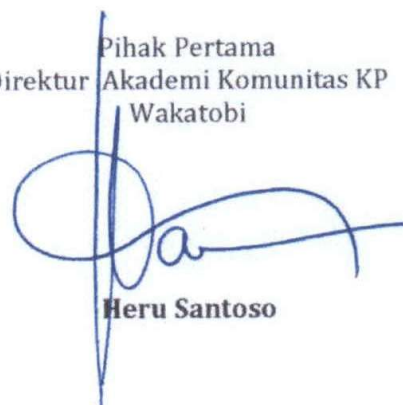 Pihak Pertama
Direktur Akademi Komunitas KP
Wakatobi
Heru Santoso